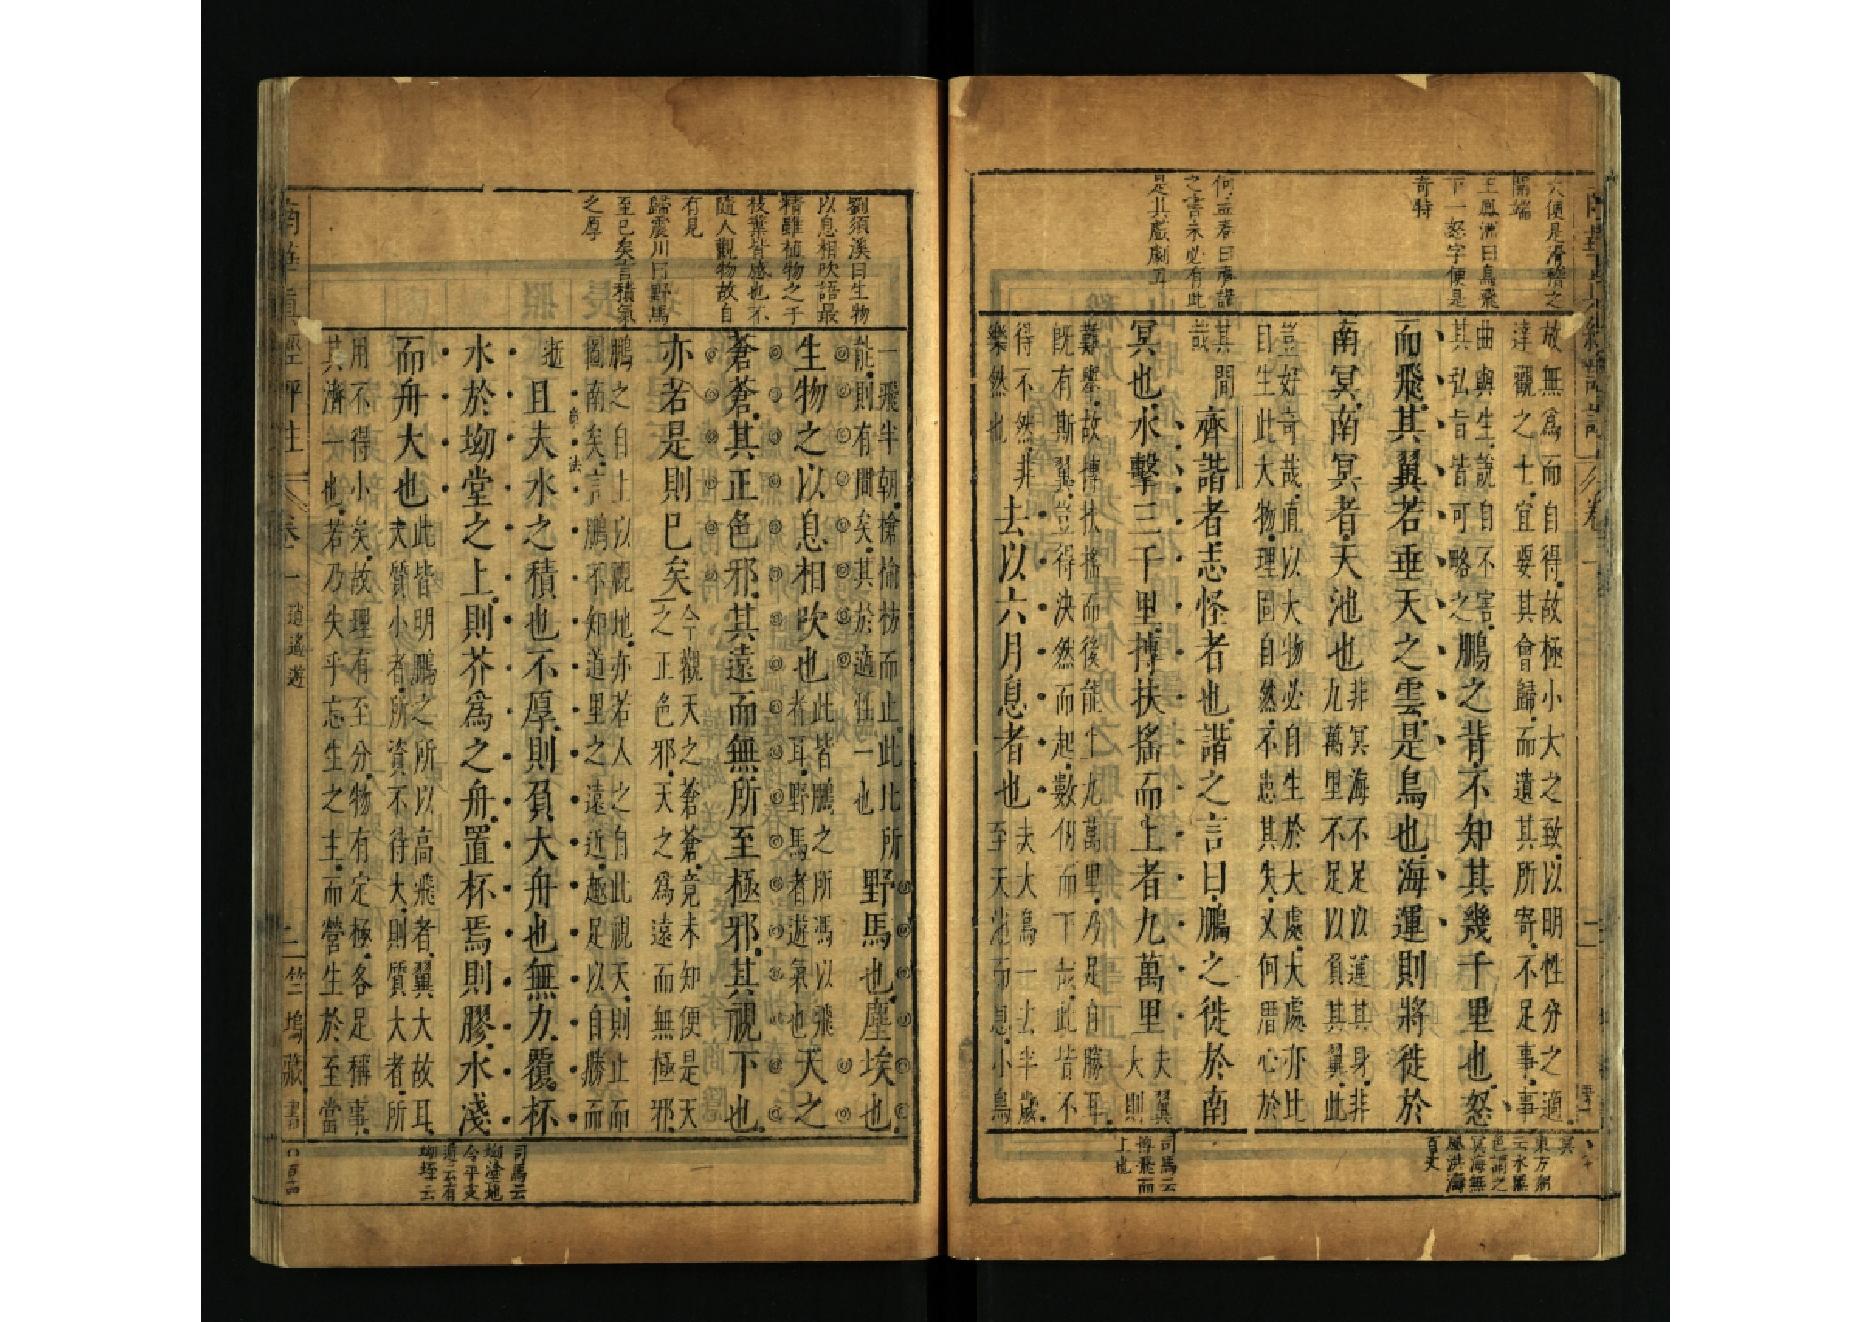 大便是滑稽之
開端
王鳳洲曰鳥飛
下一怒字便是
奇特
何孟春曰齊諧
之書未必有此
是其戲劇耳
故無爲而自得故極小大之致以明性分之適
達觀之士宜要其會歸而遺其所寄不足事事
曲與生說自不害
其弘旨皆可略之
鵬之背不知其幾千里也怒
而飛其翼若垂天之雲是鳥也海運則將徙於
南冥南冥者天池也
非冥海不足以運其身非
九萬里不足以負其翼此
豈好奇哉直以大物必自生於大處大處亦比
自生此大物理固自然不患其失又何厝心於
其間
哉
齊諧者志怪者也諧之言曰鵬之徙於南
冥也水擊三千里摶扶搖而上者九萬里
夫翼
大則
難舉故摶扶搖而後能上九萬里乃足自勝耳
既有斯翼豈得決然而起數仞而下哉此皆不
得不然非
樂然也
去以六月息者也
夫大鳥一去半歲
至天池而息小鳥
冥
東方朔
云水黑
色謂之
冥海無
風洪濤
百丈
司馬云
摶飛而
上也
劉須溪曰生物
以息相吹語最
精雖植物之于
枝葉皆感也不
隨人觀物故自
有見
歸震川曰野馬
至已矣言積氣
之厚
一飛半朝搶榆枋而止此比所
能則有間矣其於適性一也
野馬也塵埃也
生物之以息相吹也
此皆鵬之所馮以飛
者耳野馬者遊氣也
天之
蒼蒼其正色邪其遠而無所至極邪其視下也
亦若是則已矣
今觀天之蒼蒼竟未知便是天
之正色邪天之爲遠而無極邪
鵬之自上以視地亦若人之自此視天則止而
圖南矣言鵬不知道里之遠近趣足以自勝而
逝
且夫水之積也不厚則負大舟也無力覆杯
水於坳堂之上則芥爲之舟置杯焉則膠水淺
而舟大也
此皆明鵬之所以高飛者翼大故耳
夫質小者所資不待大則質大者所
用不得小矣故理有至分物有定極各足稱事
其濟一也若乃失乎忘生之主而營生於至當
司馬云
坳塗地
令平支
遁云有
坳垤云
南華真經評註
卷一
逍遙遊
二
竺塢藏書